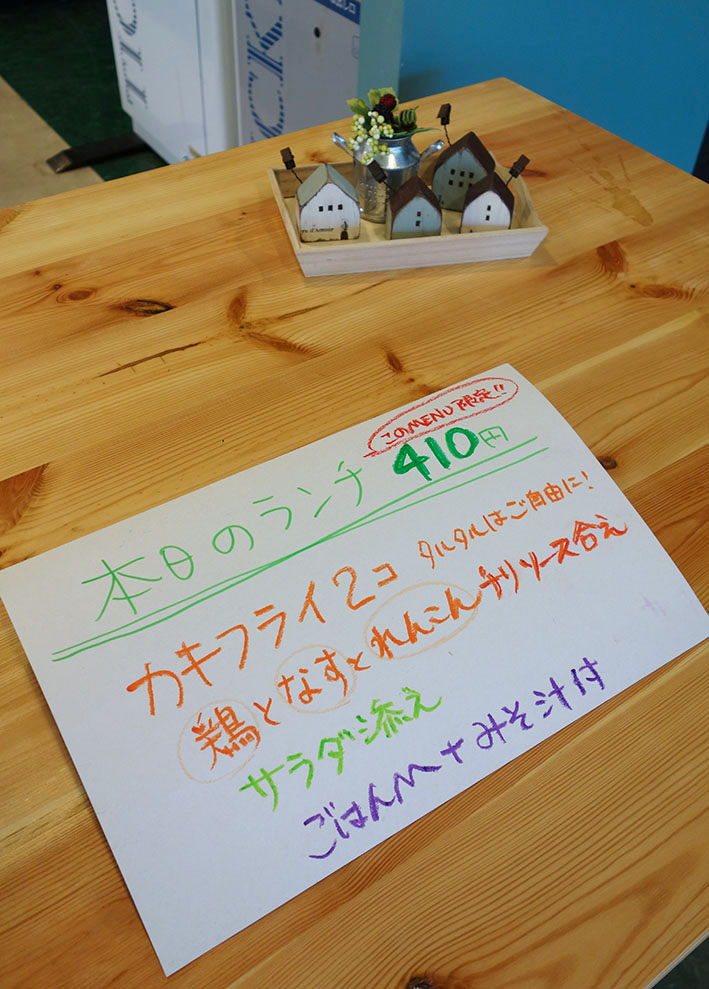 このMENU限定!!
本日のランチ 410円
カキフライ2コ タルタルはご自由に!
鶏となすとれんこんチリソース合え
サラダ添え
ごはんM+みそ汁付